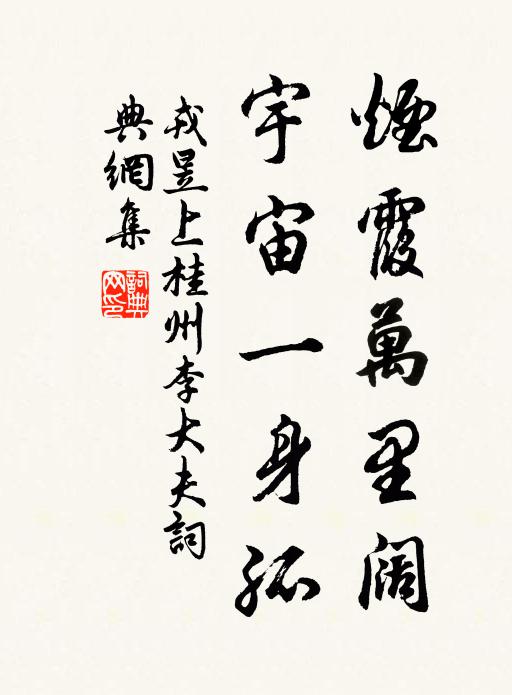 煙霞萬里闊
宇宙一身孤
戎昱上桂州李大夫詞
典網集
詞典
网印